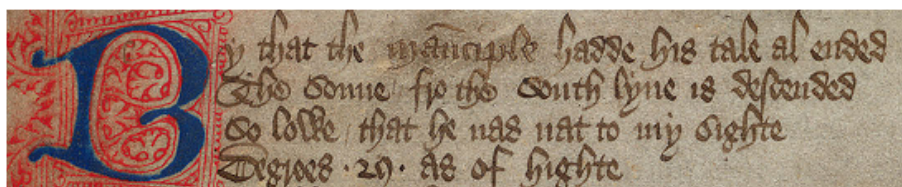 By that the mauciple hadde his tale al ended
The sonne fro the south lyne is descended
So lowe that he nas nat to my sighte
Degrees · 29 · as of highte